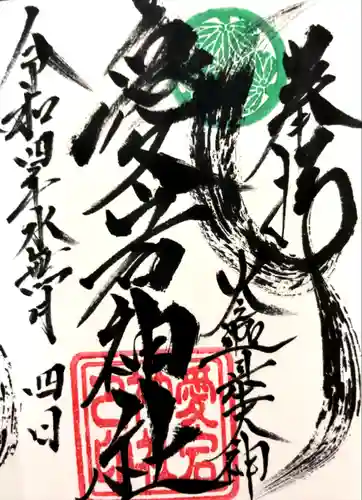 奉拝
火産霊大神
愛宕神社
令和四年水無月
四日
愛宕
神社
之印